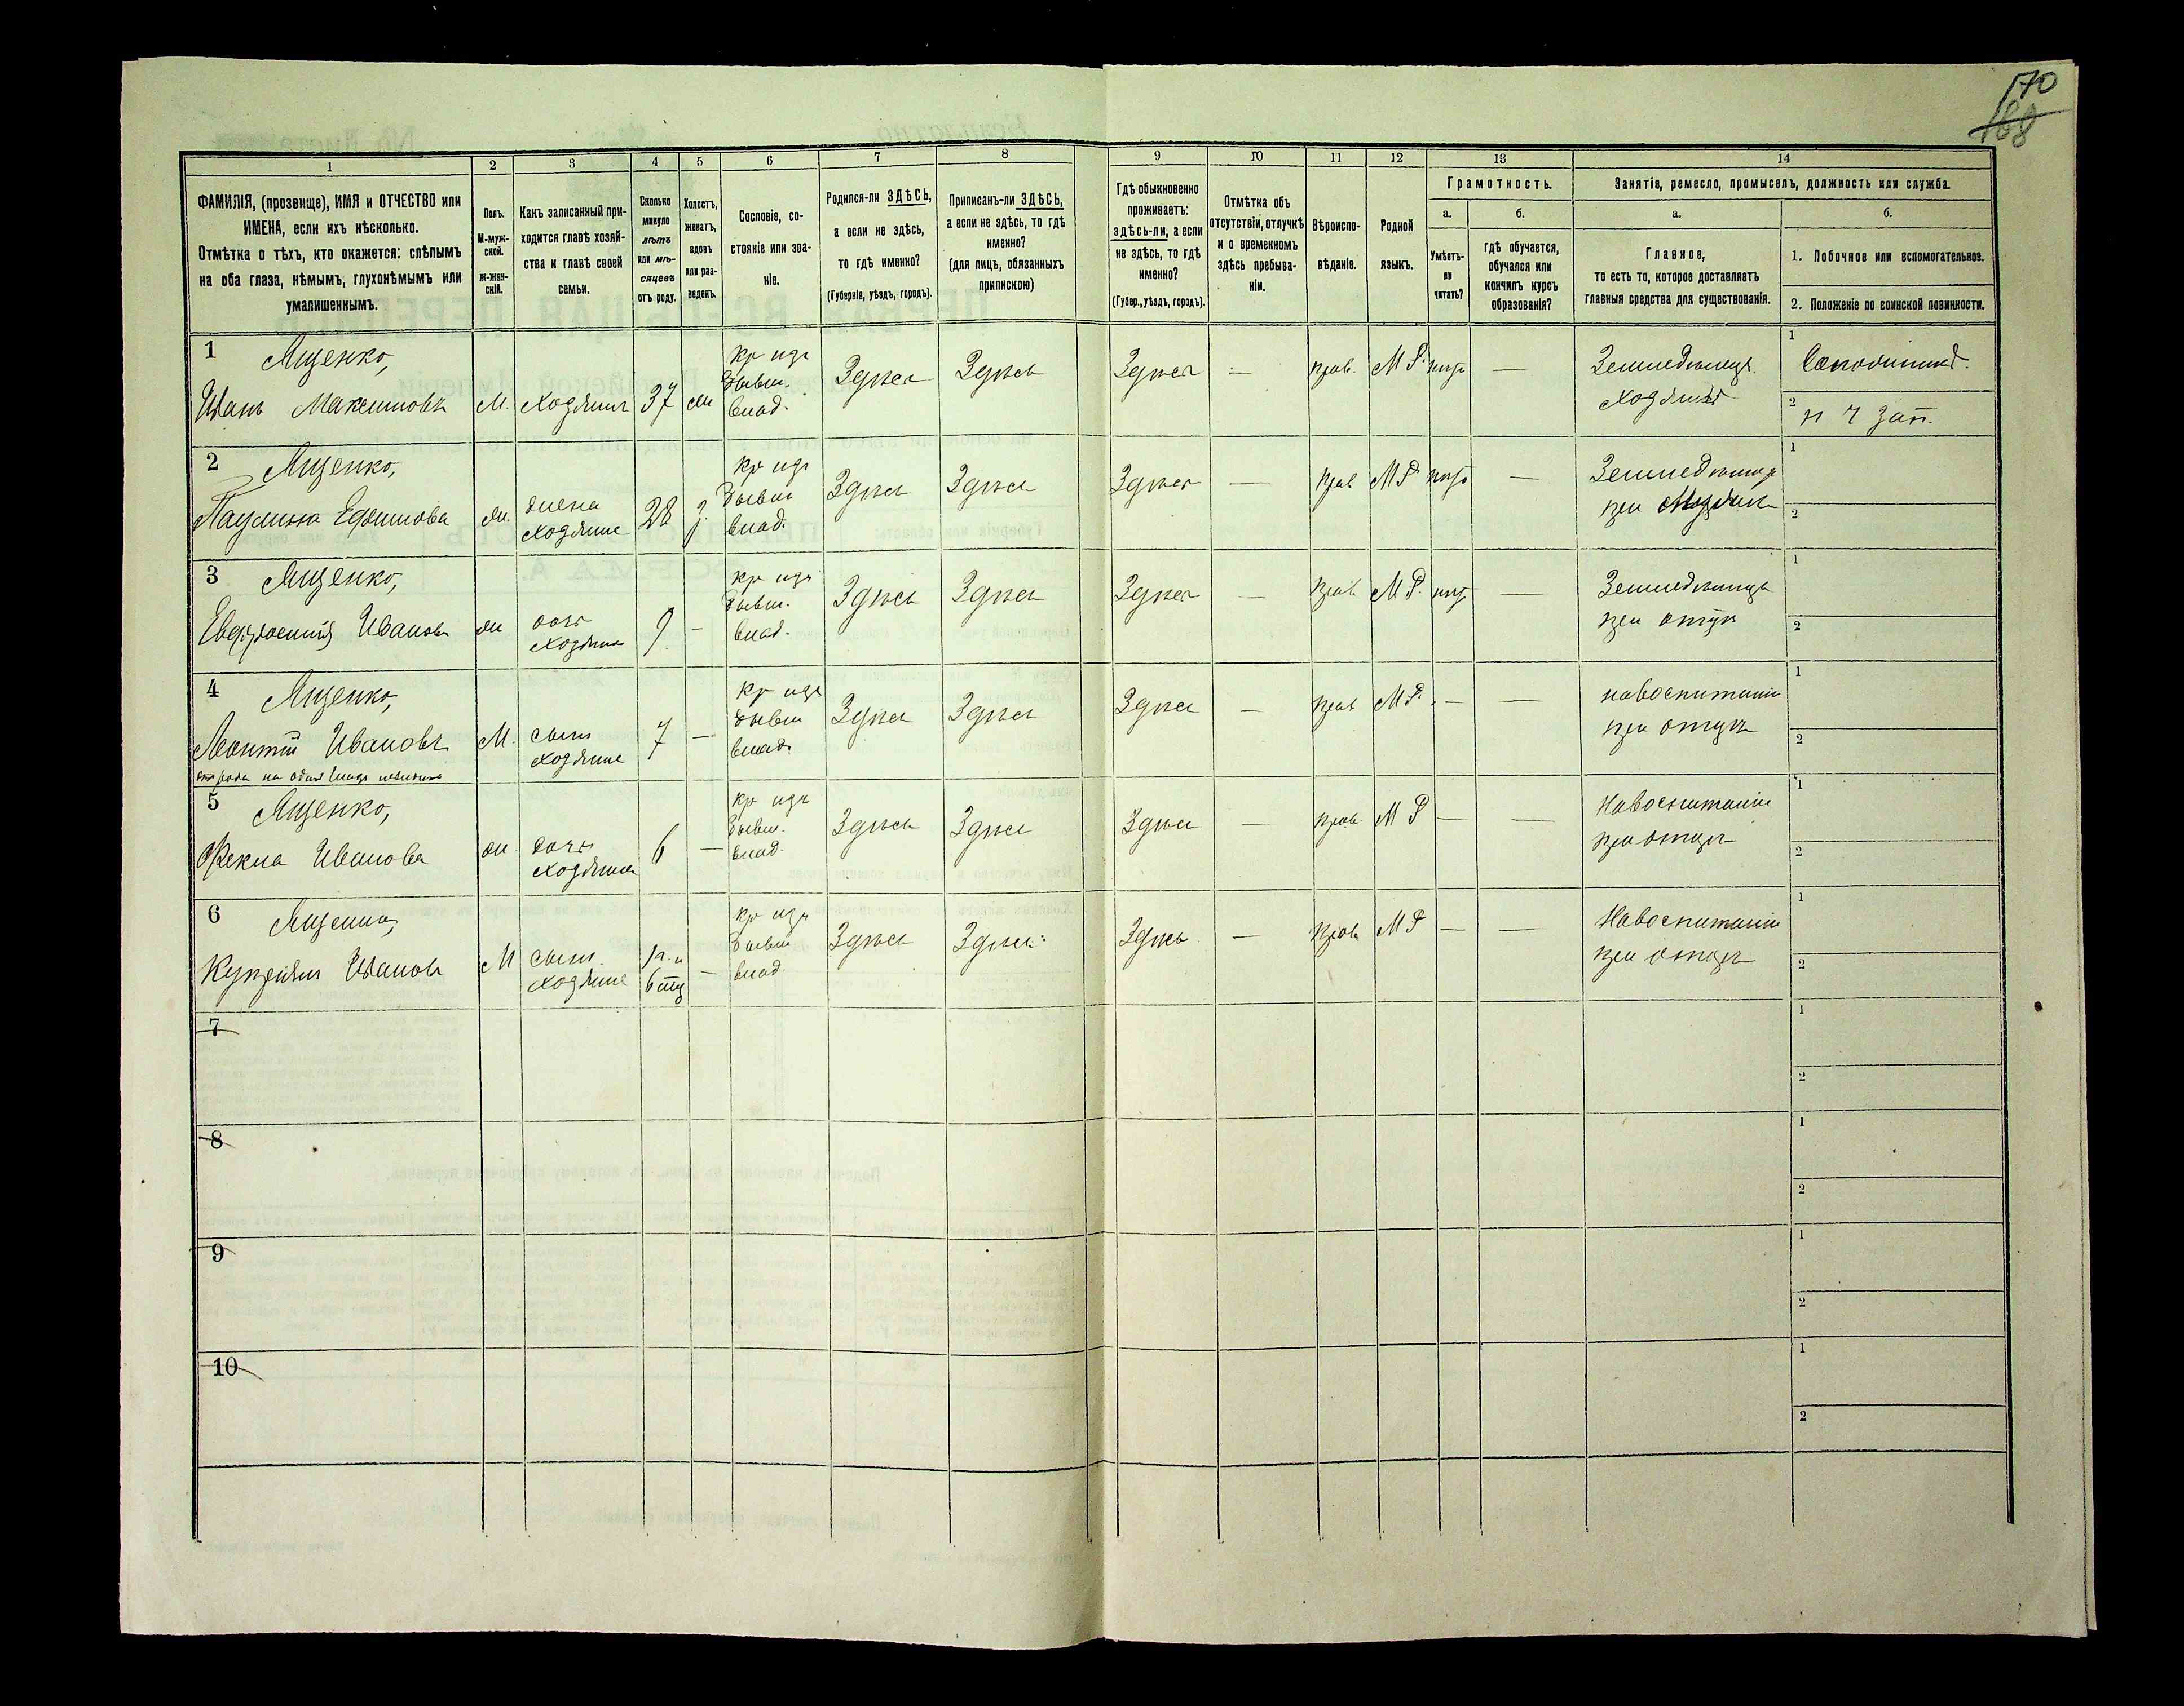 170
188
1 2 3 4 5 6 7 8 9 10 11 12 13 14
ФАМИЛІЯ, (прозвище), ИМЯ и ОТЧЕСТВО или
ИМЕНА, если ихъ нѣсколько.
Отмѣтка о тѣхъ, кто окажется: слѣпымъ
на оба глаза, нѣмымъ, глухонѣмымъ или
умалишеннымъ.
Полъ.
М-муж-
ской.
Ж-жен-
скій.
Какъ записанный при-
ходится главѣ хозяй-
ства и главѣ своей
семьи.
Сколько
минуло
лѣтъ
или мѣ-
сяцевъ
отъ роду.
Холостъ,
женатъ,
вдовъ
или раз-
веденъ.
Сословіе, со-
стояніе или зва-
ніе.
Родился-ли ЗДѢСЬ,
а если не здѣсь,
то гдѣ именно?
(Губернія, уѣздъ, городъ).
Приписанъ-ли ЗДѢСЬ,
а если не здѣсь, то гдѣ
именно?
(для лицъ, обязанныхъ
припискою)
Гдѣ обыкновенно
проживаетъ:
здѣсь-ли, а если
не здѣсь, то гдѣ
именно?
(Губер., уѣздъ, городъ).
Отмѣтка объ
отсутствіи, отлучкѣ
и о временномъ
здѣсь пребыва-
ніи.
Вѣроиспо-
вѣданіе.
Родной
языкъ.
Грамотность.
а.
Умѣетъ-
ли
читать?
б.
гдѣ обучается,
обучался или
кончилъ курсъ
образованія?
Занятіе, ремесло, промыселъ, должность или служба.
а.
Главное,
то есть то, которое доставляетъ
главныя средства для существованія.
б.
1. Побочное или вспомогательное.
2. Положеніе по воинской повинности.
1 Ященко,
Иванъ Максимовъ
М. хозяинъ 37 ж
бывш.
влад.
Здѣсь Здѣсь Здѣсь — прав. М Р. —
Земледѣлецъ
хозяинъ
1
2
2 Ященко,
Ефимова
ж. жена
хозяина
28 з.
бывш
влад.
Здѣсь Здѣсь Здѣсь — прав М Р —
Земледѣлецъ
при
1
2
3 Ященко,
Иванова
ж дочь
хозяина
9 —
бывш.
влад.
Здѣсь Здѣсь Здѣсь — прав М Р. —
Земледѣлецъ
при отцѣ
1
2
4 Ященко,
Леонтій Ивановъ
М. сынъ
хозяина
7 —
бывш
влад.
Здѣсь Здѣсь Здѣсь — прав М Р. — —
навоспитаніи
при отцѣ
1
2
5 Ященко,
Фекла Иванова
ж. дочь
хозяина
6 —
бывш.
влад.
Здѣсь Здѣсь Здѣсь — прав. М Р — —
Навоспитаніи
при отцѣ
1
2
6 Ященко,
Купріянъ Ивановъ
М сынъ
хозяина
—
бывш
влад
Здѣсь Здѣсь Здѣсь — прав М Р — —
Навоспитаніи
при отцѣ
1
2
7
1
2
8
1
2
9
1
2
10
1
2